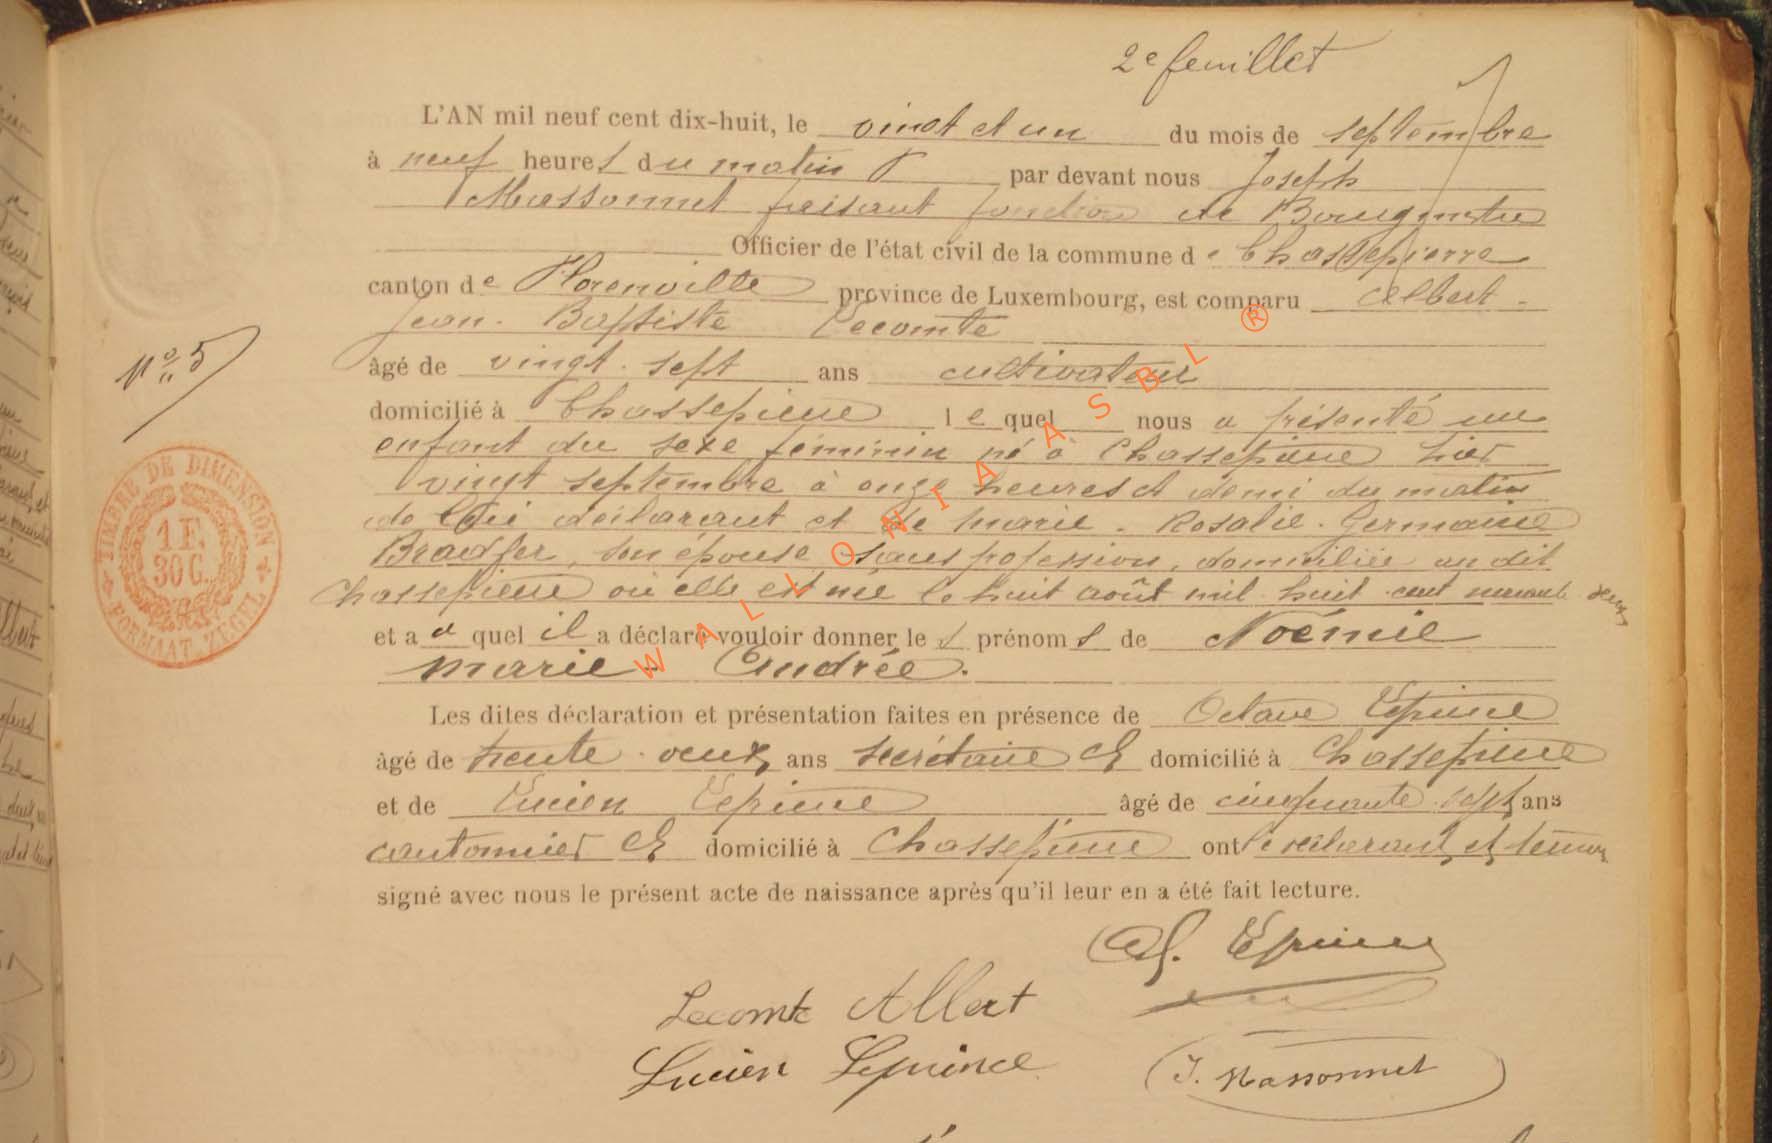 2e feuillet
L'AN mil neuf cent dix-huit, le vingt et un du mois de septembre
à neuf heures du matin par devant nous Joseph
Massonnet faisant fonction de Bourgmestre
Officier de l'état civil de la commune de Chassepierre
canton de Florenville province de Luxembourg, est comparu Albert
Jean-Baptiste Lecomte
âgé de vingt-sept ans cultivateur
domicilié à Chassepierre lequel nous a présenté un
enfant du sexe féminin né à Chassepierre hier
vingt septembre à onze heures et demi du matin
de lui déclarant et de Marie-Rosalie-Germaine
Bradfer, son épouse, sans profession, domiciliée au dit
Chassepierre où elle est née le huit août mil huit cent nonante deux
et a quel il a déclaré vouloir donner les prénoms de Noémie
Marie-Andrée.
Les dites déclaration et présentation faites en présence de Octave
âgé de trente-deux ans secrétaire domicilié à Chassepierre
et de Lucien âgé de cinquante-sept ans
cantonnier domicilié à Chassepierre ont le déclarant et témoins
signé avec nous le présent acte de naissance après qu'il leur en a été fait lecture.
Lecomte Albert
Lucien Leprince
J. Massonnet
No 5
TIMBRE DE DIMENSION
1 F.
30 C.
FORMAAT ZEGEL
WALLONIA ASBL ®